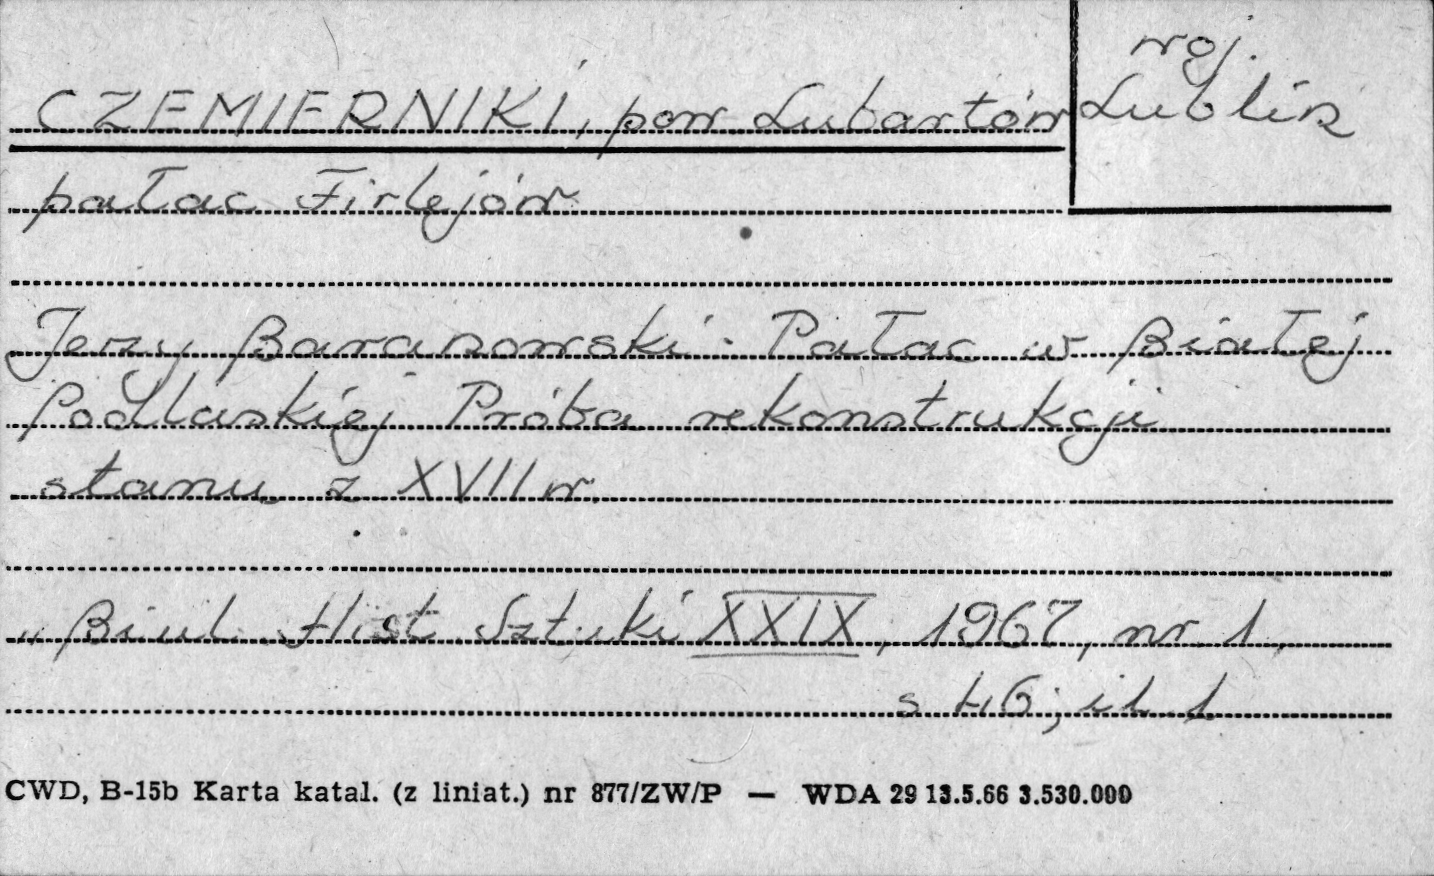 woj.
CZEMIERNIKI, pow Lubartów
Lublin
pałac Firlejów
Jerzy Baranowski: Pałac w Białej
Podlaskiej Próba rekonstrukcji
stanu z XVII w.
„Biul. Hist Sztuki XXIX, 1967, nr 1,
s 46; il. 1
CWD, B-15b Karta katal. (z liniat.) nr 877/ZW/P — WDA 29 13.5.66 3.530.000